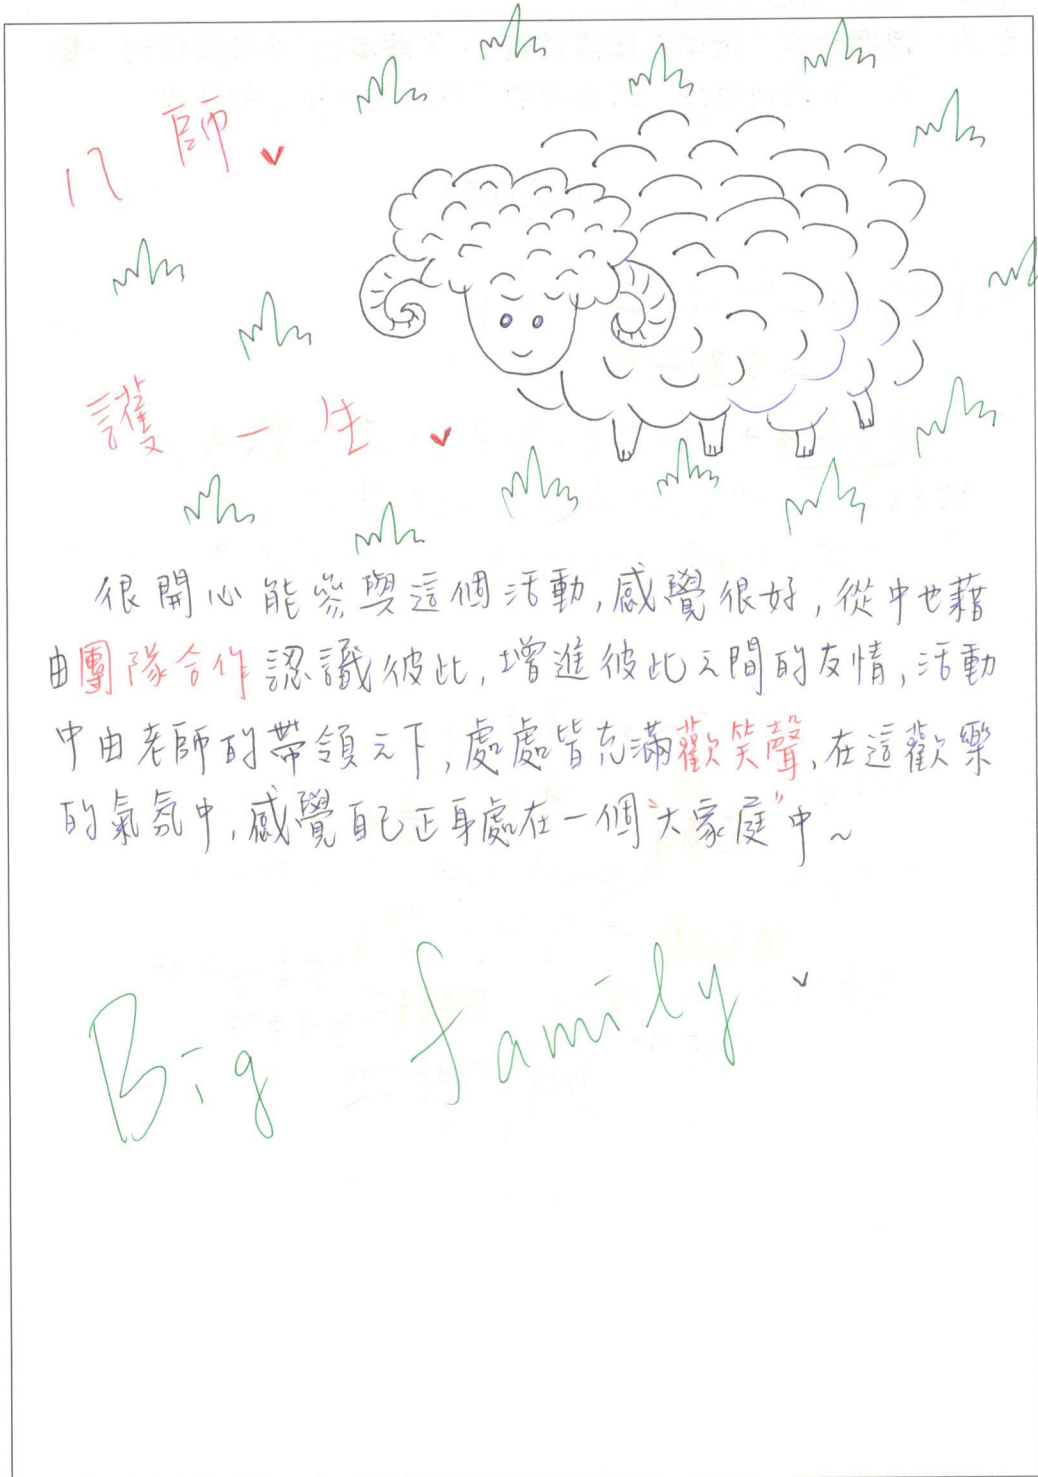 八師
護一生
很開心能參與這個活動,感覺很好,從中也藉
由團隊合作認識彼此,增進彼此之間的友情,活動
中由老師的帶領之下,處處皆充滿歡笑聲,在這歡樂
的氣氛中,感覺自己正身處在一個"大家庭"中~
Big family